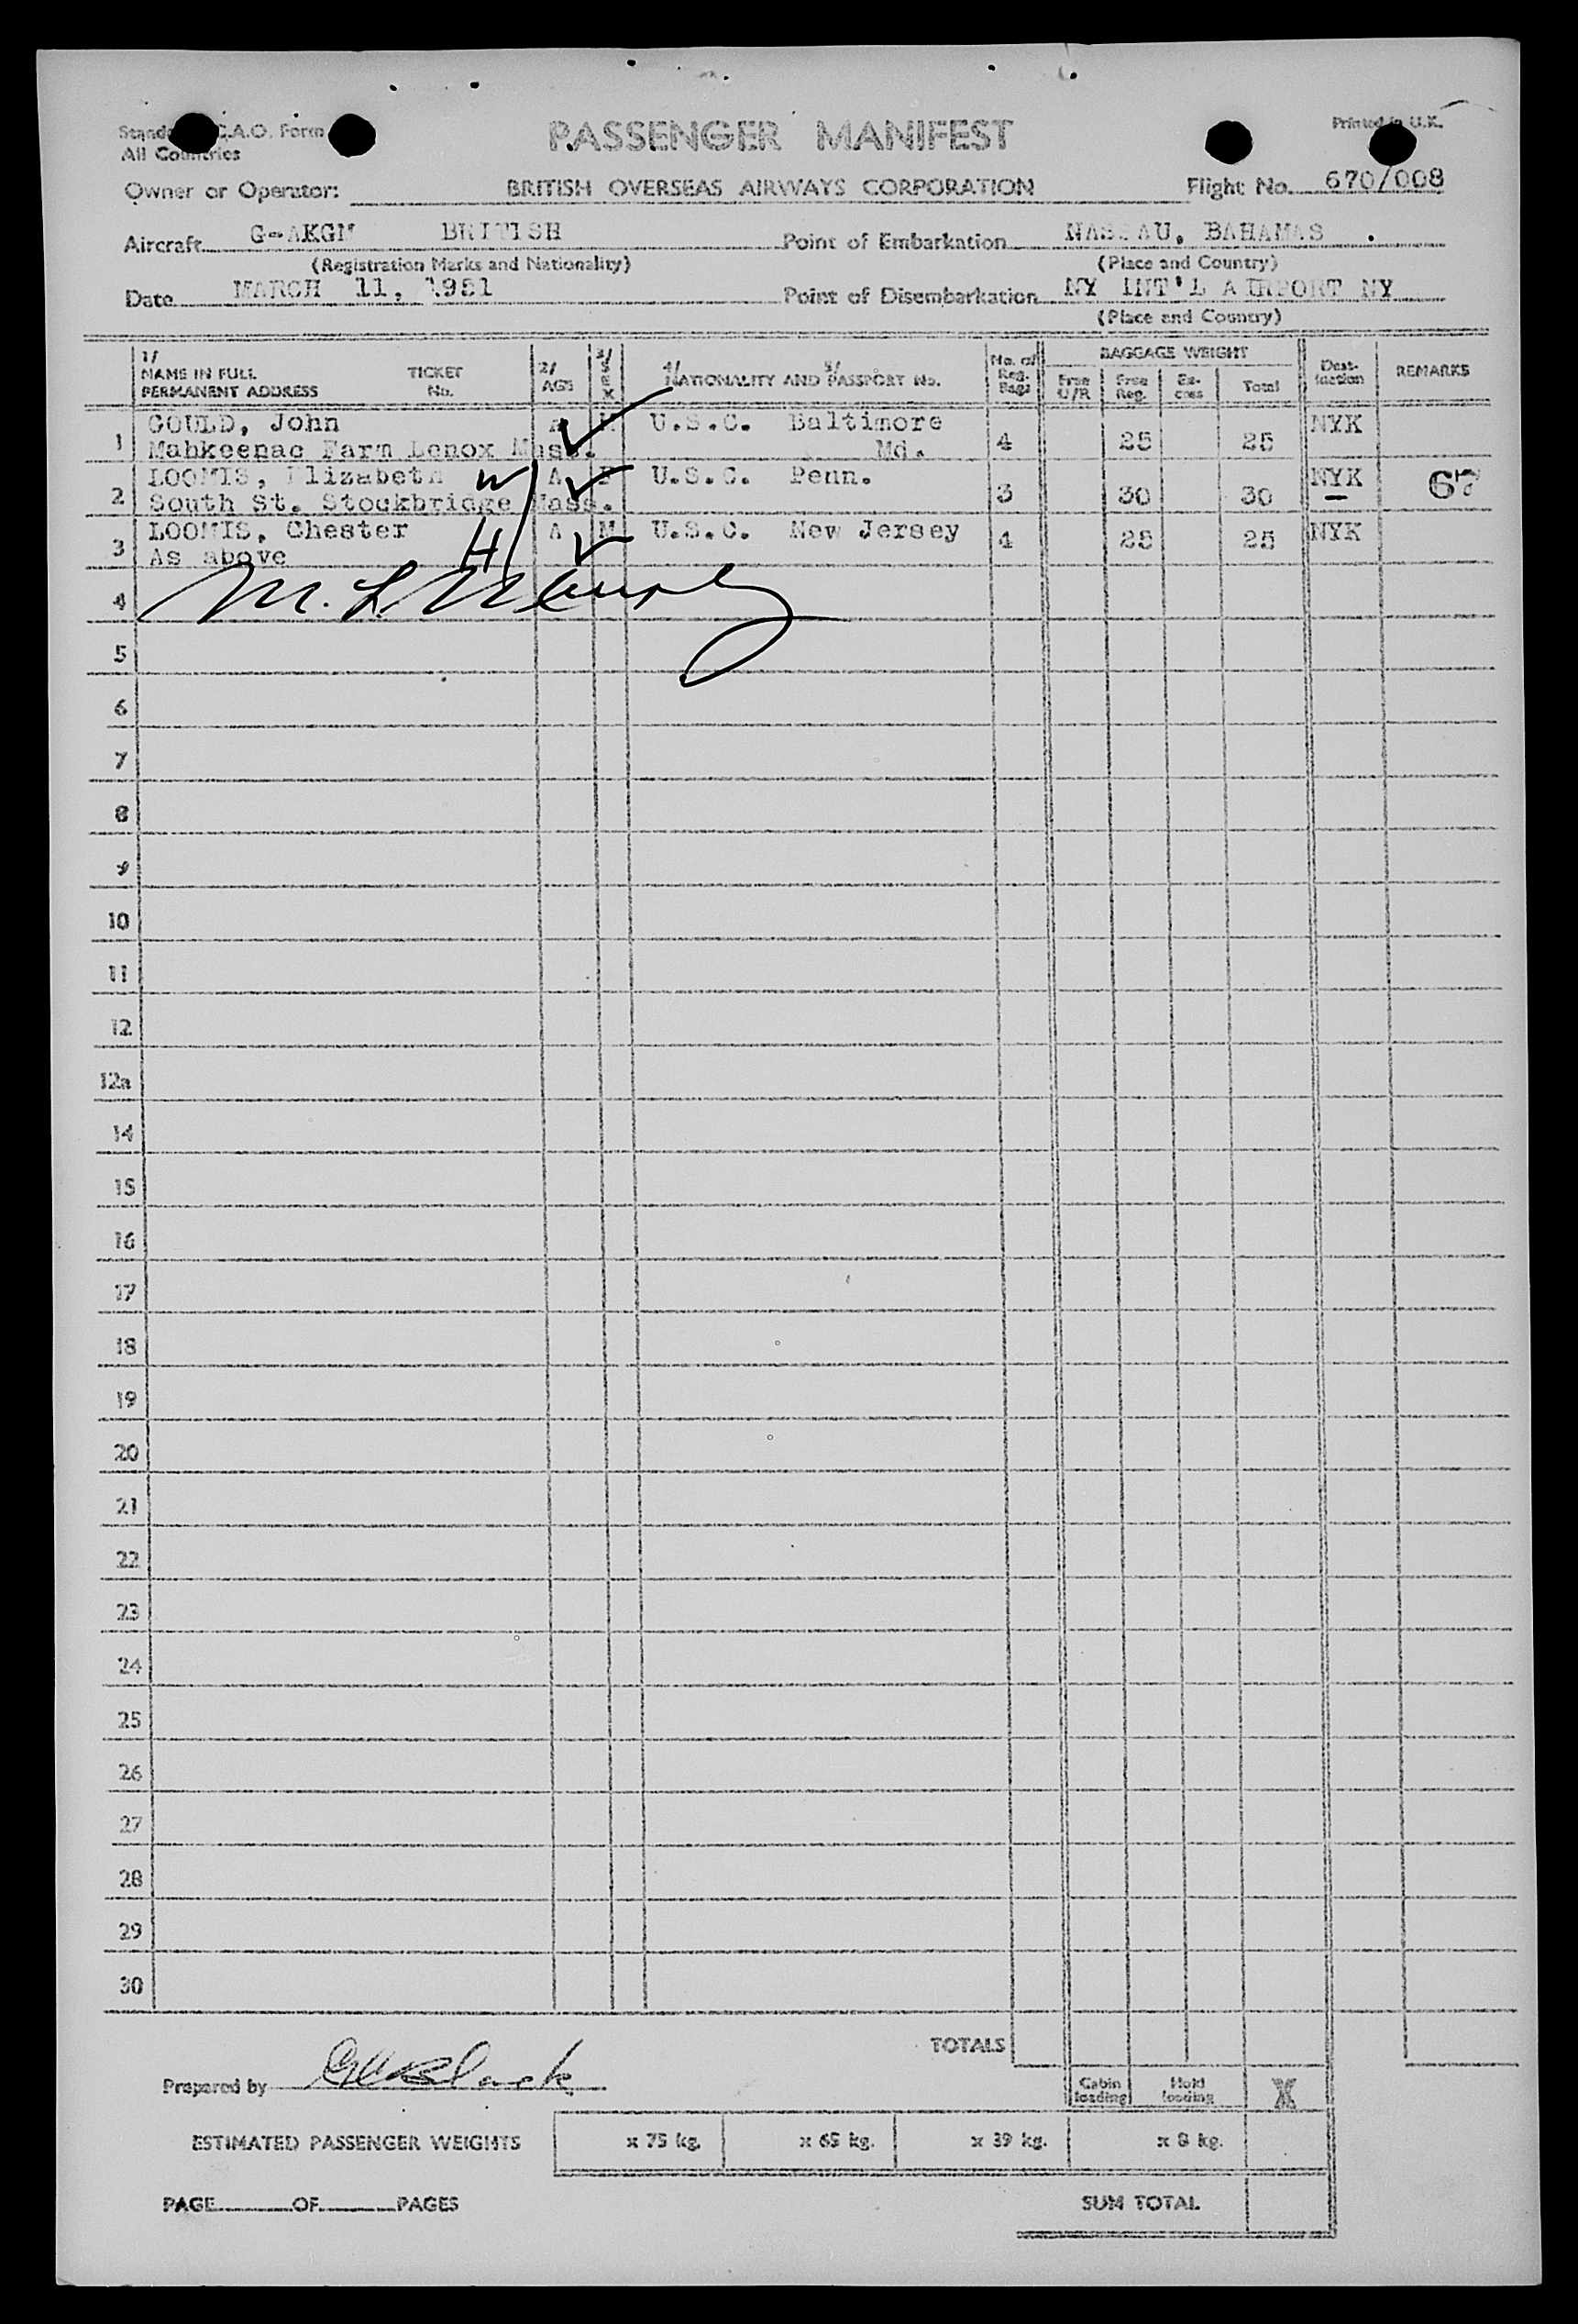 PASSENGER MANIFEST
All Countries
Printed in U.K.
Owner or Operator: BRITISH OVERSEAS AIRWAYS CORPORATION Flight No. 670/008
Aircraft G-AKGM BRITISH Point of Embarkation NASSAU, BAHAMAS .
(Registration Marks and Nationality) (Place and Country)
Date MARCH 11, 1951 Point of Disembarkation NY INT'L AIRPORT NY
(Place and Country)
1/ NAME IN FULL PERMANENT ADDRESS TICKET No. 2/ AGE 3/ SEX 4/ NATIONALITY AND 5/ PASSPORT No. No. of Reg. Bags BAGGAGE WEIGHT Free U/R Free Reg. Ex-cess Total Dest-ination REMARKS
1 GOULD, John A M U.S.C. Baltimore 4 25 25 NYK
Mahkeenac Farm Lenox Mass. Md.
2 LOOMIS, Elizabeth W A F U.S.C. Penn. 3 30 30 NYK 67
South St. Stockbridge Mass.
3 LOOMIS, Chester H A M U.S.C. New Jersey 4 25 25 NYK
As above
4 M. L.
5
6
7
8
9
10
11
12
12a
14
15
16
17
18
19
20
21
22
23
24
25
26
27
28
29
30
TOTALS
Prepared by
Cabin loading Hold loading X
ESTIMATED PASSENGER WEIGHTS x 75 kg. x 65 kg. x 39 kg. x 8 kg.
PAGE OF PAGES SUM TOTAL